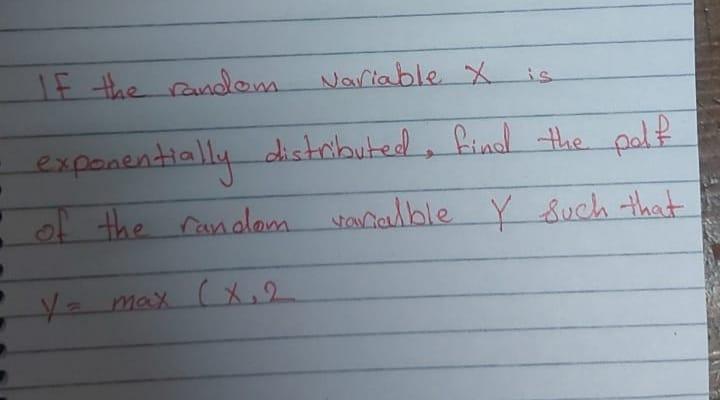 IF the random variable X is
exponentially distributed, find the pdf
of the random varialble Y such that
Y = max (X,2